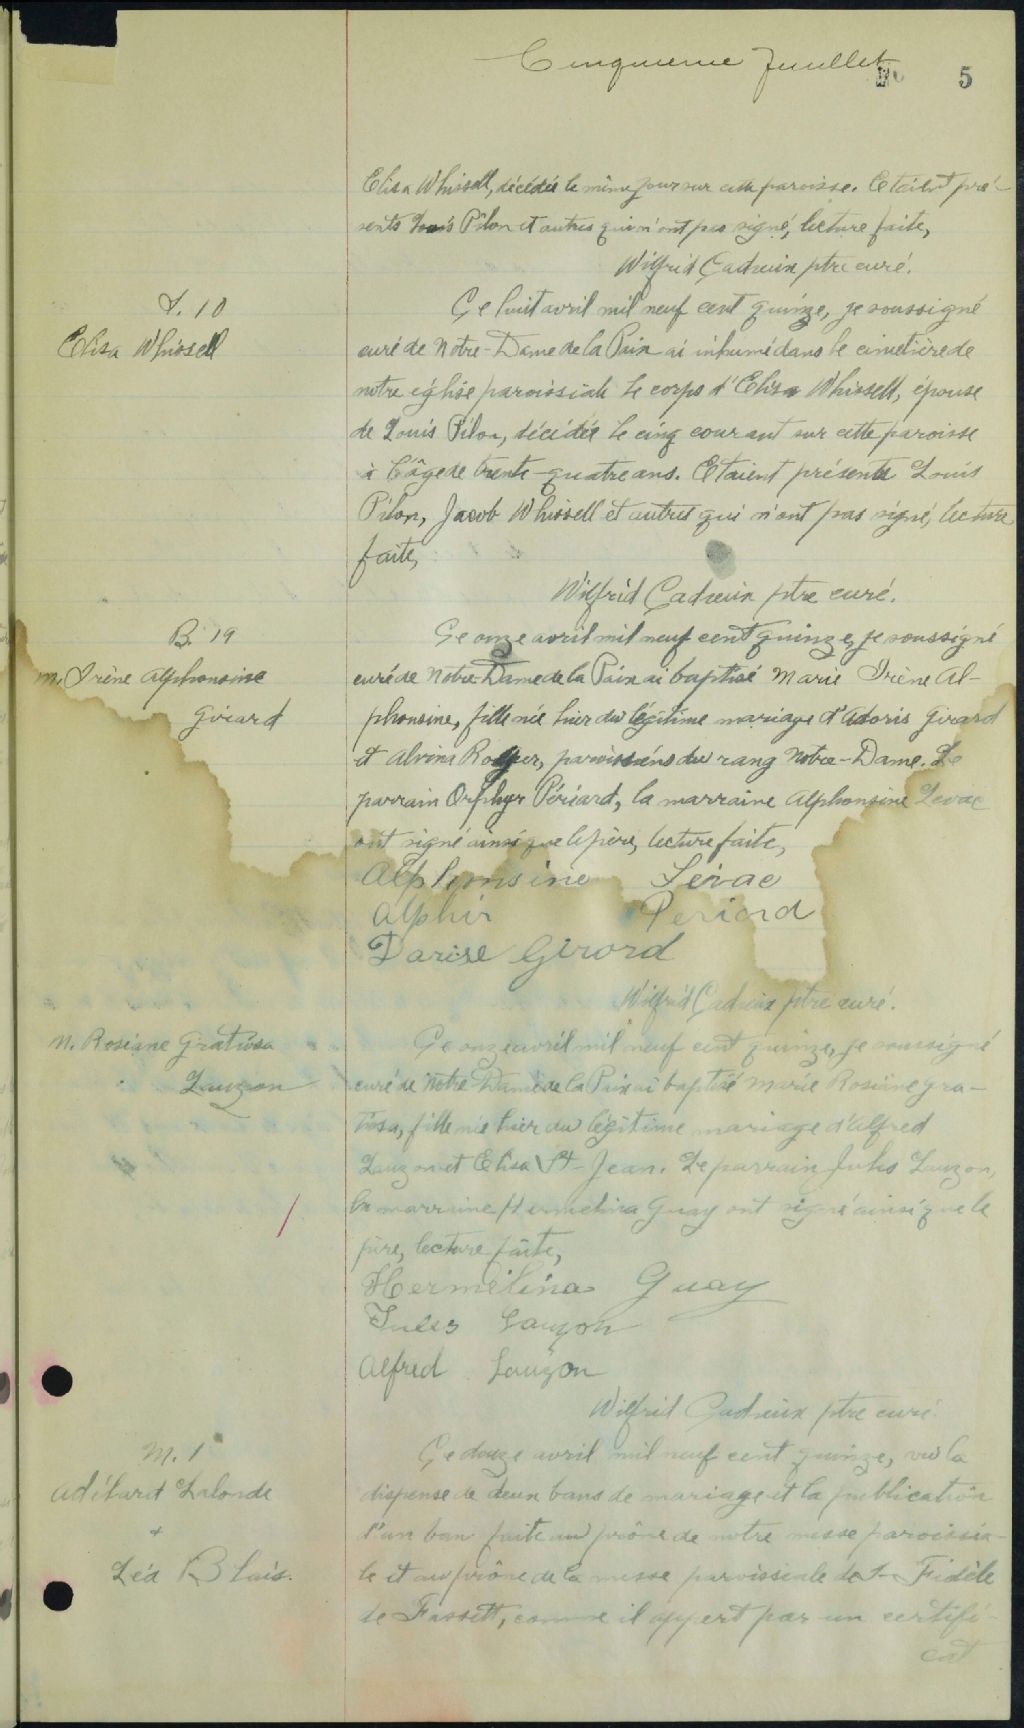 Cinquieme feuillet
5
Elisa Whissell, décédée le même jour sur cette paroisse. Etaient pré-
sents Louis Pilon et autres qui n'ont pas signé, lecture faite,
Wilfrid Cadieux ptre curé.
S. 10
Elisa Whissell
Ce huit avril mil neuf cent quinze, je soussigné
curé de Notre-Dame de la Paix ai inhumé dans le cimetière de
notre église paroissiale le corps d'Elisa Whissell, épouse
de Louis Pilon, décédée le cinq courant sur cette paroisse
à l'âge de trente-quatre ans. Etaient présents Louis
Pilon, Jacob Whissell et autres qui n'ont pas signé, lecture
faite,
Wilfrid Cadieux ptre curé.
B. 19
M. Irène Alphonsine
Girard
Ce onze avril mil neuf cent quinze, je soussigné
curé de Notre-Dame de la Paix ai baptisé Marie Irène Al-
phonsine, fille née hier du légitime mariage d'Adoris Girard
et Alvina, paroissiens du rang Notre-Dame. Le
parrain Orphyr Périard, la marraine Alphonsine Levac
ont signé ainsi que le père, lecture faite,
Alphonsine Levac
Alphir Periard
Darise Girord
Wilfrid Cadieux ptre curé.
M. Rosiane Gratiosa
Lauzon
Ce onze avril mil neuf cent quinze, je soussigné
curé de Notre-Dame de la Paix ai baptisé Marie Rosiane Gra-
tiosa, fille née hier du légitime mariage d'Alfred
Lauzon et Elisa St-Jean. Le parrain Jules Lauzon,
la marraine Hermelina Guay ont signé ainsi que le
père, lecture faite,
Hermélina Guay
Jules Lauzon
Alfred Lauzon
Wilfrid Cadieux ptre curé
M. 1
Adélard Lalonde
+
Léa Blais.
Ce douze avril mil neuf cent quinze, vu la
dispense de deux bans de mariage et la publication
d'un ban faite au prône de notre messe paroissia-
le et au prône de la messe paroissiale de St-Fidèle
de Fassett, comme il appert par un certifi-
cat